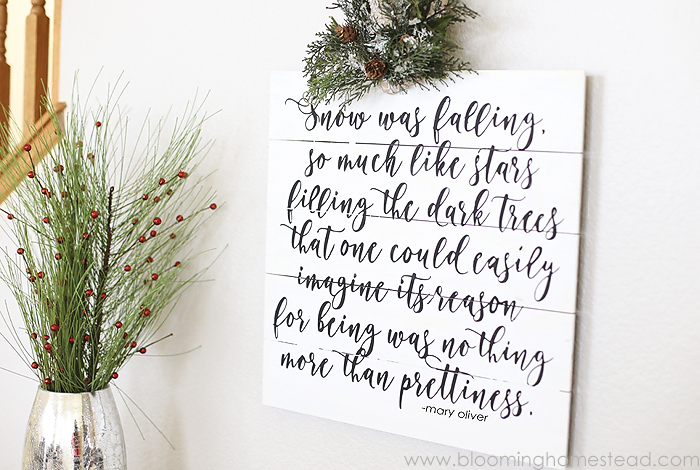 Snow was falling,
so much like stars
filling the dark trees
that one could easily
imagine its reason
for being was nothing
more than prettiness.
-mary oliver
www.bloominghomestead.com